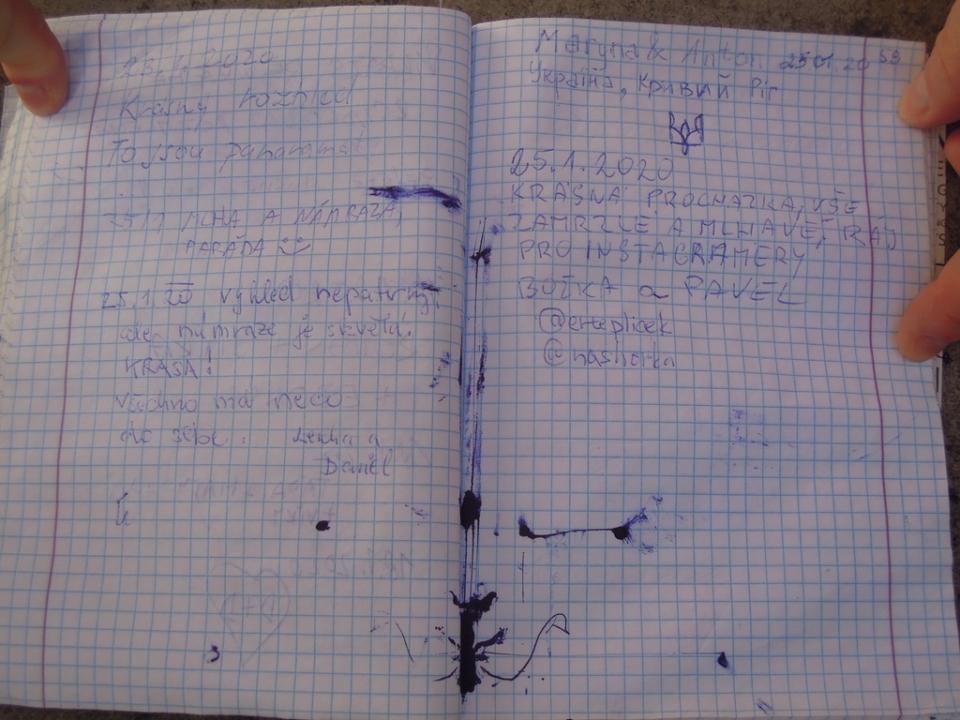 25.1.2020
Krásný rozhled
To jsou panoramat
25/1 MLHA A NÁMRAZA,
PARÁDA
25.1.20 výhled nepatrný,
ale námraze je skvělá.
KRÁSA!
Všechno má něco
do sebe. Lenka a
Daniel
Maryna & Anton 25.01.20
Україна, Кривий Ріг
25.1.2020
KRÁSNÁ PROCHÁZKA, VŠE
ZAMRZLÉ A MLHAVÉ, RÁJ
PRO INSTAGRAMERY
a PAVEL